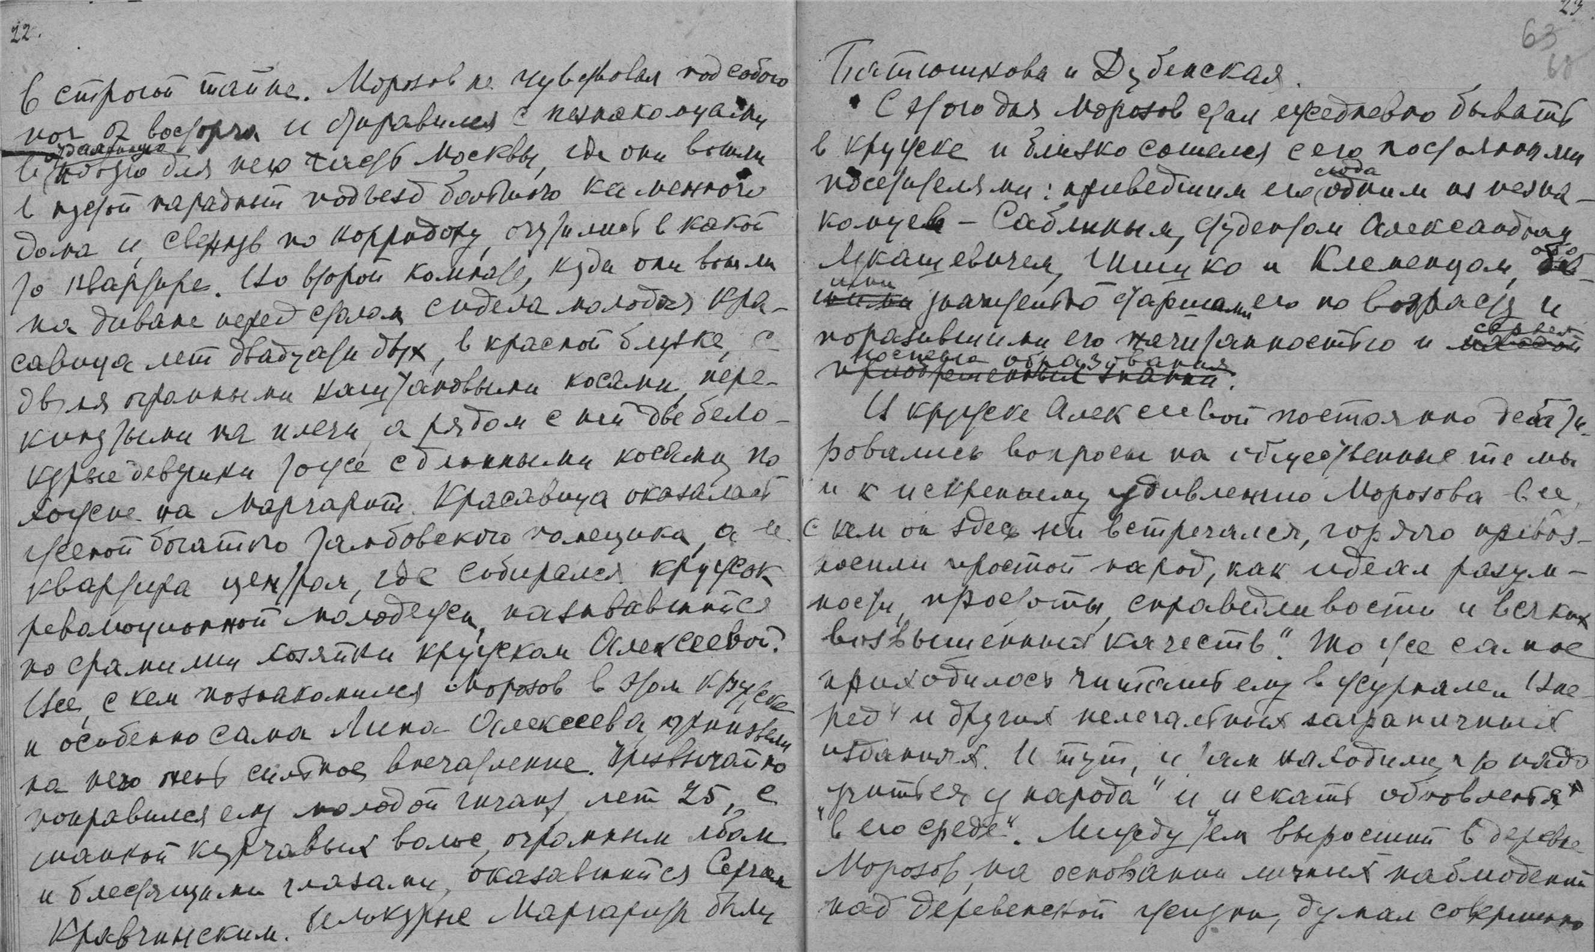 22.
в строгой тайне. Морозов не чувствовал под собою
ног от восторга и отправился с незнакомцами
в отдаленную
для него часть Москвы, где они вошли
в пустой парадный подъезд большого каменного
дома и, свернув по корридору, очутились в какой
то квартире. Во второй комнате, куда они вошли
на диване перед столом сидела молодая кра-
савица лет двадцати двух, в красной блузке, с
двумя огромными каштановыми косами, пере-
кинутыми на плечи, а рядом с ней две бело-
курые девушки тоже с длинными косами, по
хожие на Маргарит. Красавица оказалась
женой богатого тамбовского помещика, а ее
квартира центром, где собирался кружок
революционной молодежи, называвшийся
по фамилии хозяйки кружком Алексеевой.
Все, с кем познакомился Морозов в этом кружке
и особенно сама Липа Алексеева, произвели
на него очень сильное впечатление. Чрезвычайно
понравился ему молодой гигант, лет 25, с
шапкой курчавых волос, огромным лбом
и блестящими глазами, оказавшийся Сергеем
Кравчинским. Белокурые Маргариты были
23
63
Батюшкова и Дубенская.
С этого дня Морозов стал ежедневно бывать
в кружке и близко сошелся с его постоянными
посетителями: приведшим его сюда одним из незна-
комцев – Саблиным, студентом Александром
Лукашевичем, Шишко и Клеменцом,
значительно старшими его по возрасту и
поразившими его начитанностью и
образования
В кружке Алексеевой постоянно дебати-
ровались вопросы на общественные темы
и к искреннему удивлению Морозова все,
с кем он здесь ни встречался, горячо превоз-
носили простой народ, как идеал разум-
ности, простоты, справедливости и всяких
возвышенных качеств". То же самое
приходилось читать ему в журнале „Впе
ред" и других нелегальных заграничных
изданиях. И тут, и там находили, что надо
„учиться у народа" и искать обновления
„в его среде". Между тем выросший в деревне
Морозов, на основании личных наблюдений
над деревенской жизнью, думал совершенно